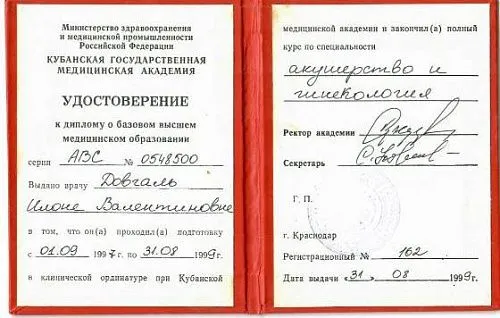 Министерство здравоохранения
и медицинской промышленности
Российской Федерации
КУБАНСКАЯ ГОСУДАРСТВЕННАЯ
МЕДИЦИНСКАЯ АКАДЕМИЯ
УДОСТОВЕРЕНИЕ
к диплому о базовом высшем
медицинском образовании
серии АВС № 0548500
Выдано врачу Довгаль
Илоне Валентиновне
в том, что он(а) проходил(а) подготовку
с 01.09 1997г. по 31.08 1999г.
в клинической ординатуре при Кубанской
медицинской академии и закончил(а) полный
курс по специальности
акушерство и
гинекология
Ректор академии
Секретарь
Г. П.
г. Краснодар
Регистрационный № 162
Дата выдачи «31» 08 1999г.